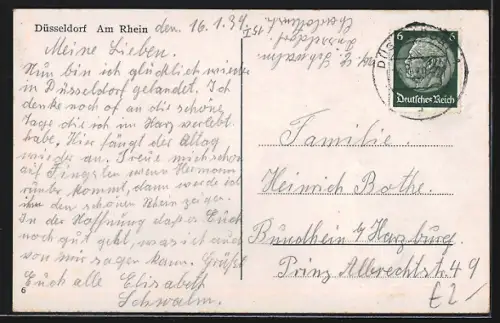 Düsseldorf Am Rhein den. 16.1.39
Meine Lieben.
Nun bin ich glücklich wieder
in Düsseldorf gelandet. Ich
denke noch of an die schöne
Tage die ich im Harz verlebt
habe. Hier fängt der Alltag
wieder an. Freue mich schon
auf Fingsten wenn Hermann
runter kommt, dann werde ich
ihm den schönen Rhein zeigen.
In der Hoffnung daß es Euch
noch gut geht, was ich auch
von mir sagen kann. Grüßt
Euch alle Elisabeth
Schwalm.
6
Düsseldorf.
6 6
Deutsches Reich
Familie.
Heinrich Bothe.
Bundheim b/Harzburg.
Prinz Albrechtstr 49
£2-